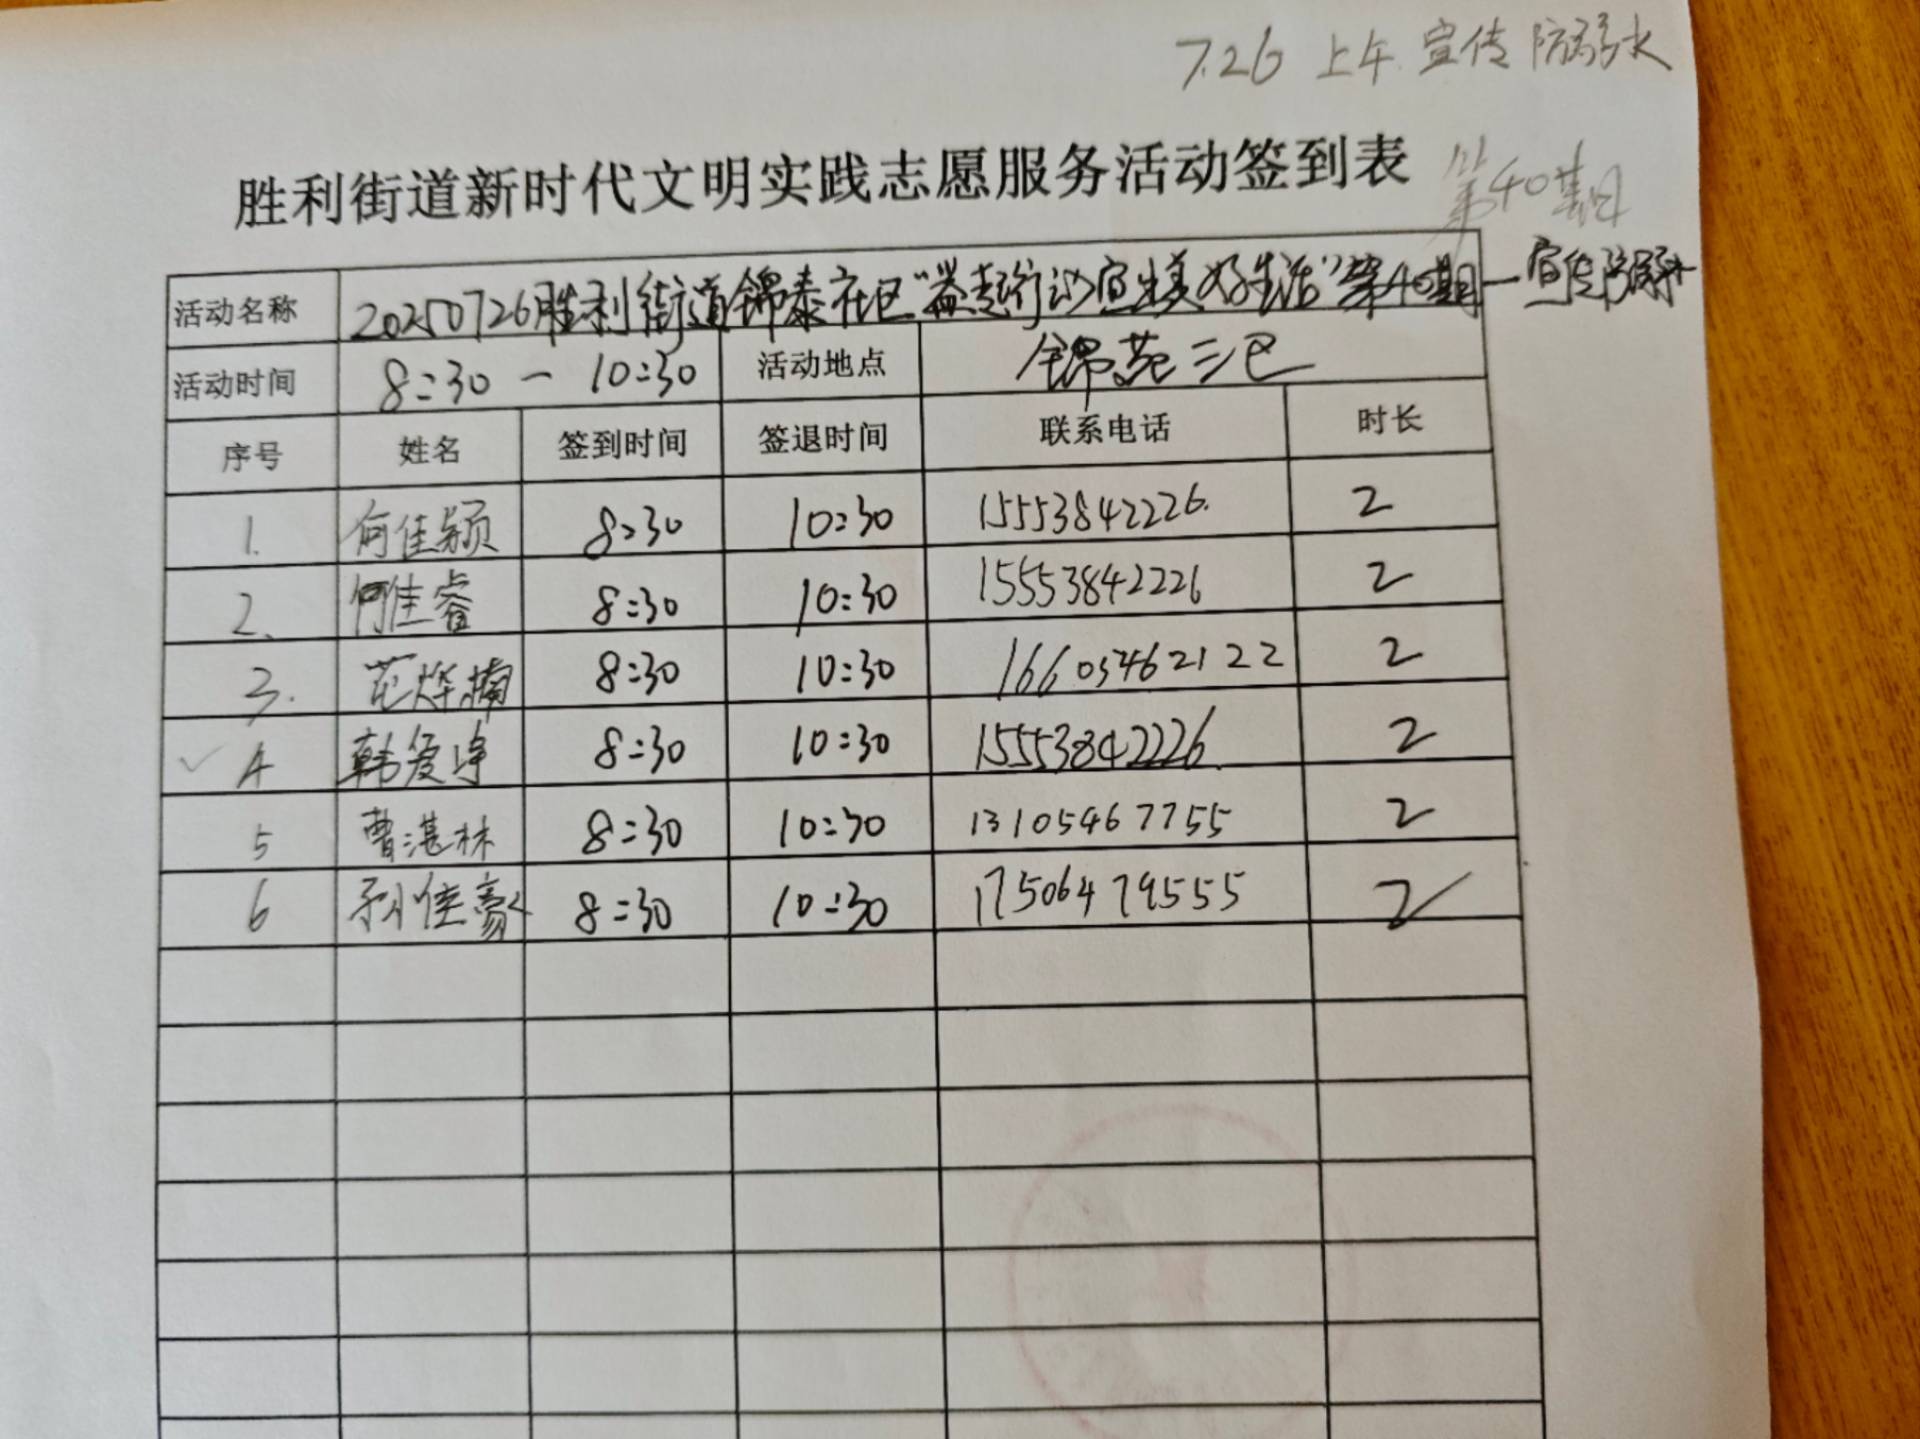 7.26 上午 宣传 防溺水
胜利街道新时代文明实践志愿服务活动签到表
第40期
活动名称 20250726胜利街道锦泰社区"益起行动宜生美好生活"第40期—宣传防溺水
活动时间 8:30 — 10:30 活动地点 锦苑三区
序号 姓名 签到时间 签退时间 联系电话 时长
1. 何佳颖 8:30 10:30 15553842226. 2
2. 何佳睿 8:30 10:30 15553842226 2
3. 范烨楠 8:30 10:30 16603462122 2
✓ 4 韩爱 8:30 10:30 15553842226. 2
5 曹湛林 8:30 10:30 13105467755 2
6 孙佳豪 8:30 10:30 17506479555 2